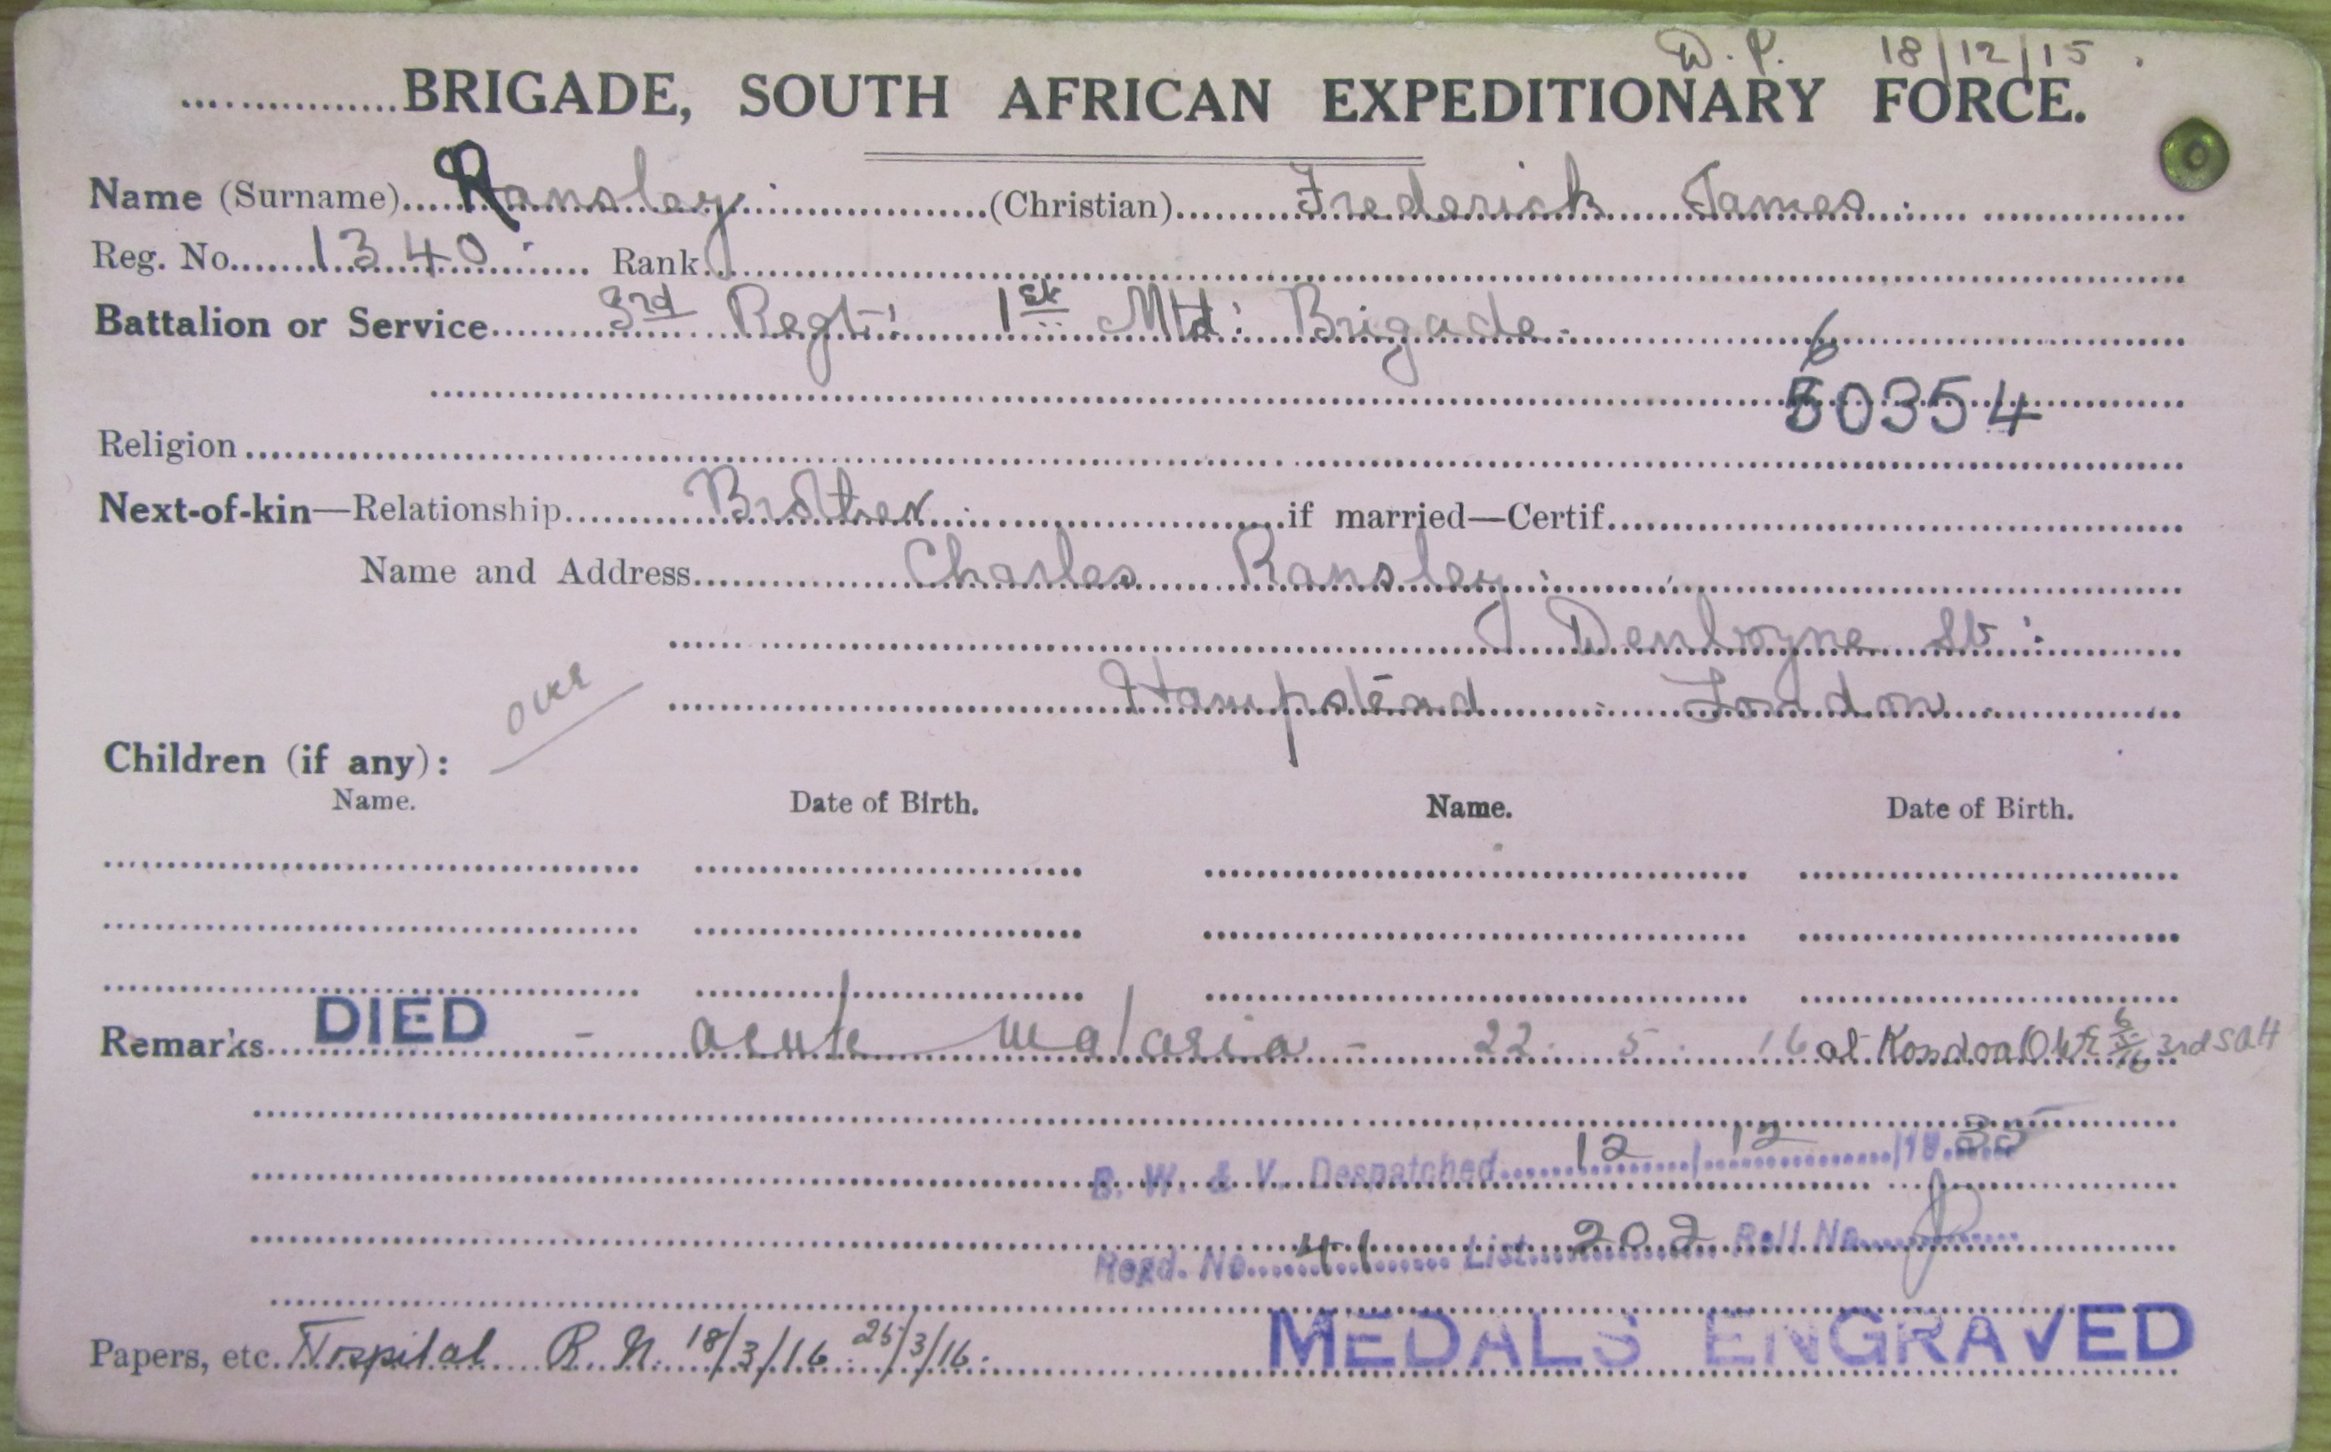 D. P. 18/12/15.
BRIGADE, SOUTH AFRICAN EXPEDITIONARY FORCE.
Name (Surname) Ransley (Christian) Frederick James
Reg. No. 1340 Rank
Battalion or Service 3rd Regt: 1st Mtd: Brigade.
6
50354
Religion
Next-of-kin—Relationship Brother if married—Certif.
Name and Address Charles Ransley
St:
Hampstead London
over
Children (if any):
Name. Date of Birth. Name. Date of Birth.
Remarks DIED - acute malaria - 22. 5. 16 at Kondoa 3rd SAH
B. W. & V. Despatched 12/12/19
Regd. No. 41 List 202 Roll No.
MEDALS ENGRAVED
Papers, etc. Hospital R. N. 18/3/16 25/3/16.